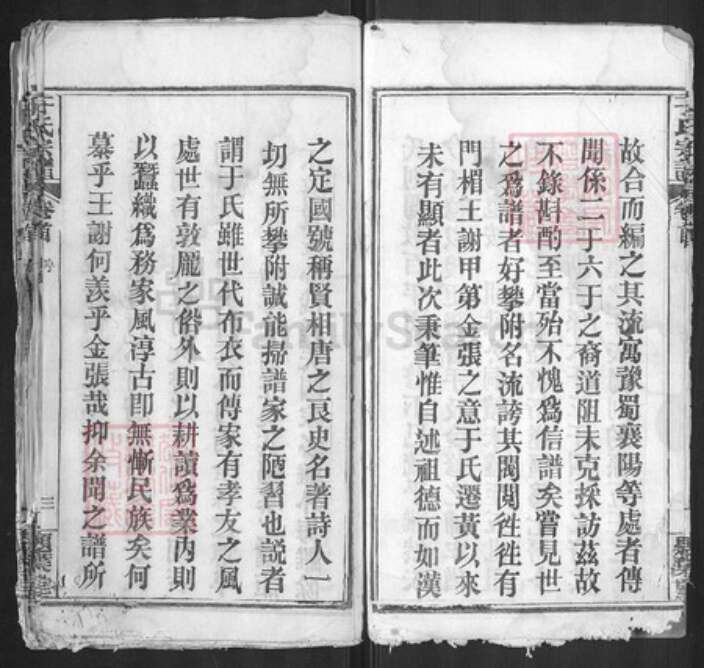 故合而編之其流寓豫蜀襄陽等處者傳
聞係二于六于之裔道阻未克採訪茲故
不錄斟酌至當殆不愧爲信譜矣嘗見世
之爲譜者好攀附名流誇其閥閱徃徃有
門楣王謝甲第金張之意于氏遷黃以來
未有顯者此次秉筆惟自述祖德而如漢
之定國號稱賢相唐之良史名著詩人一
切無所攀附誠能掃譜家之陋習也說者
謂于氏雖世代布衣而傳家有孝友之風
處世有敦龐之俗外則以耕讀爲業內則
以蠶織爲務家風淳古卽無慚民族矣何
慕乎王謝何羨乎金張哉抑余聞之譜所
卷首
三
FamilySearch